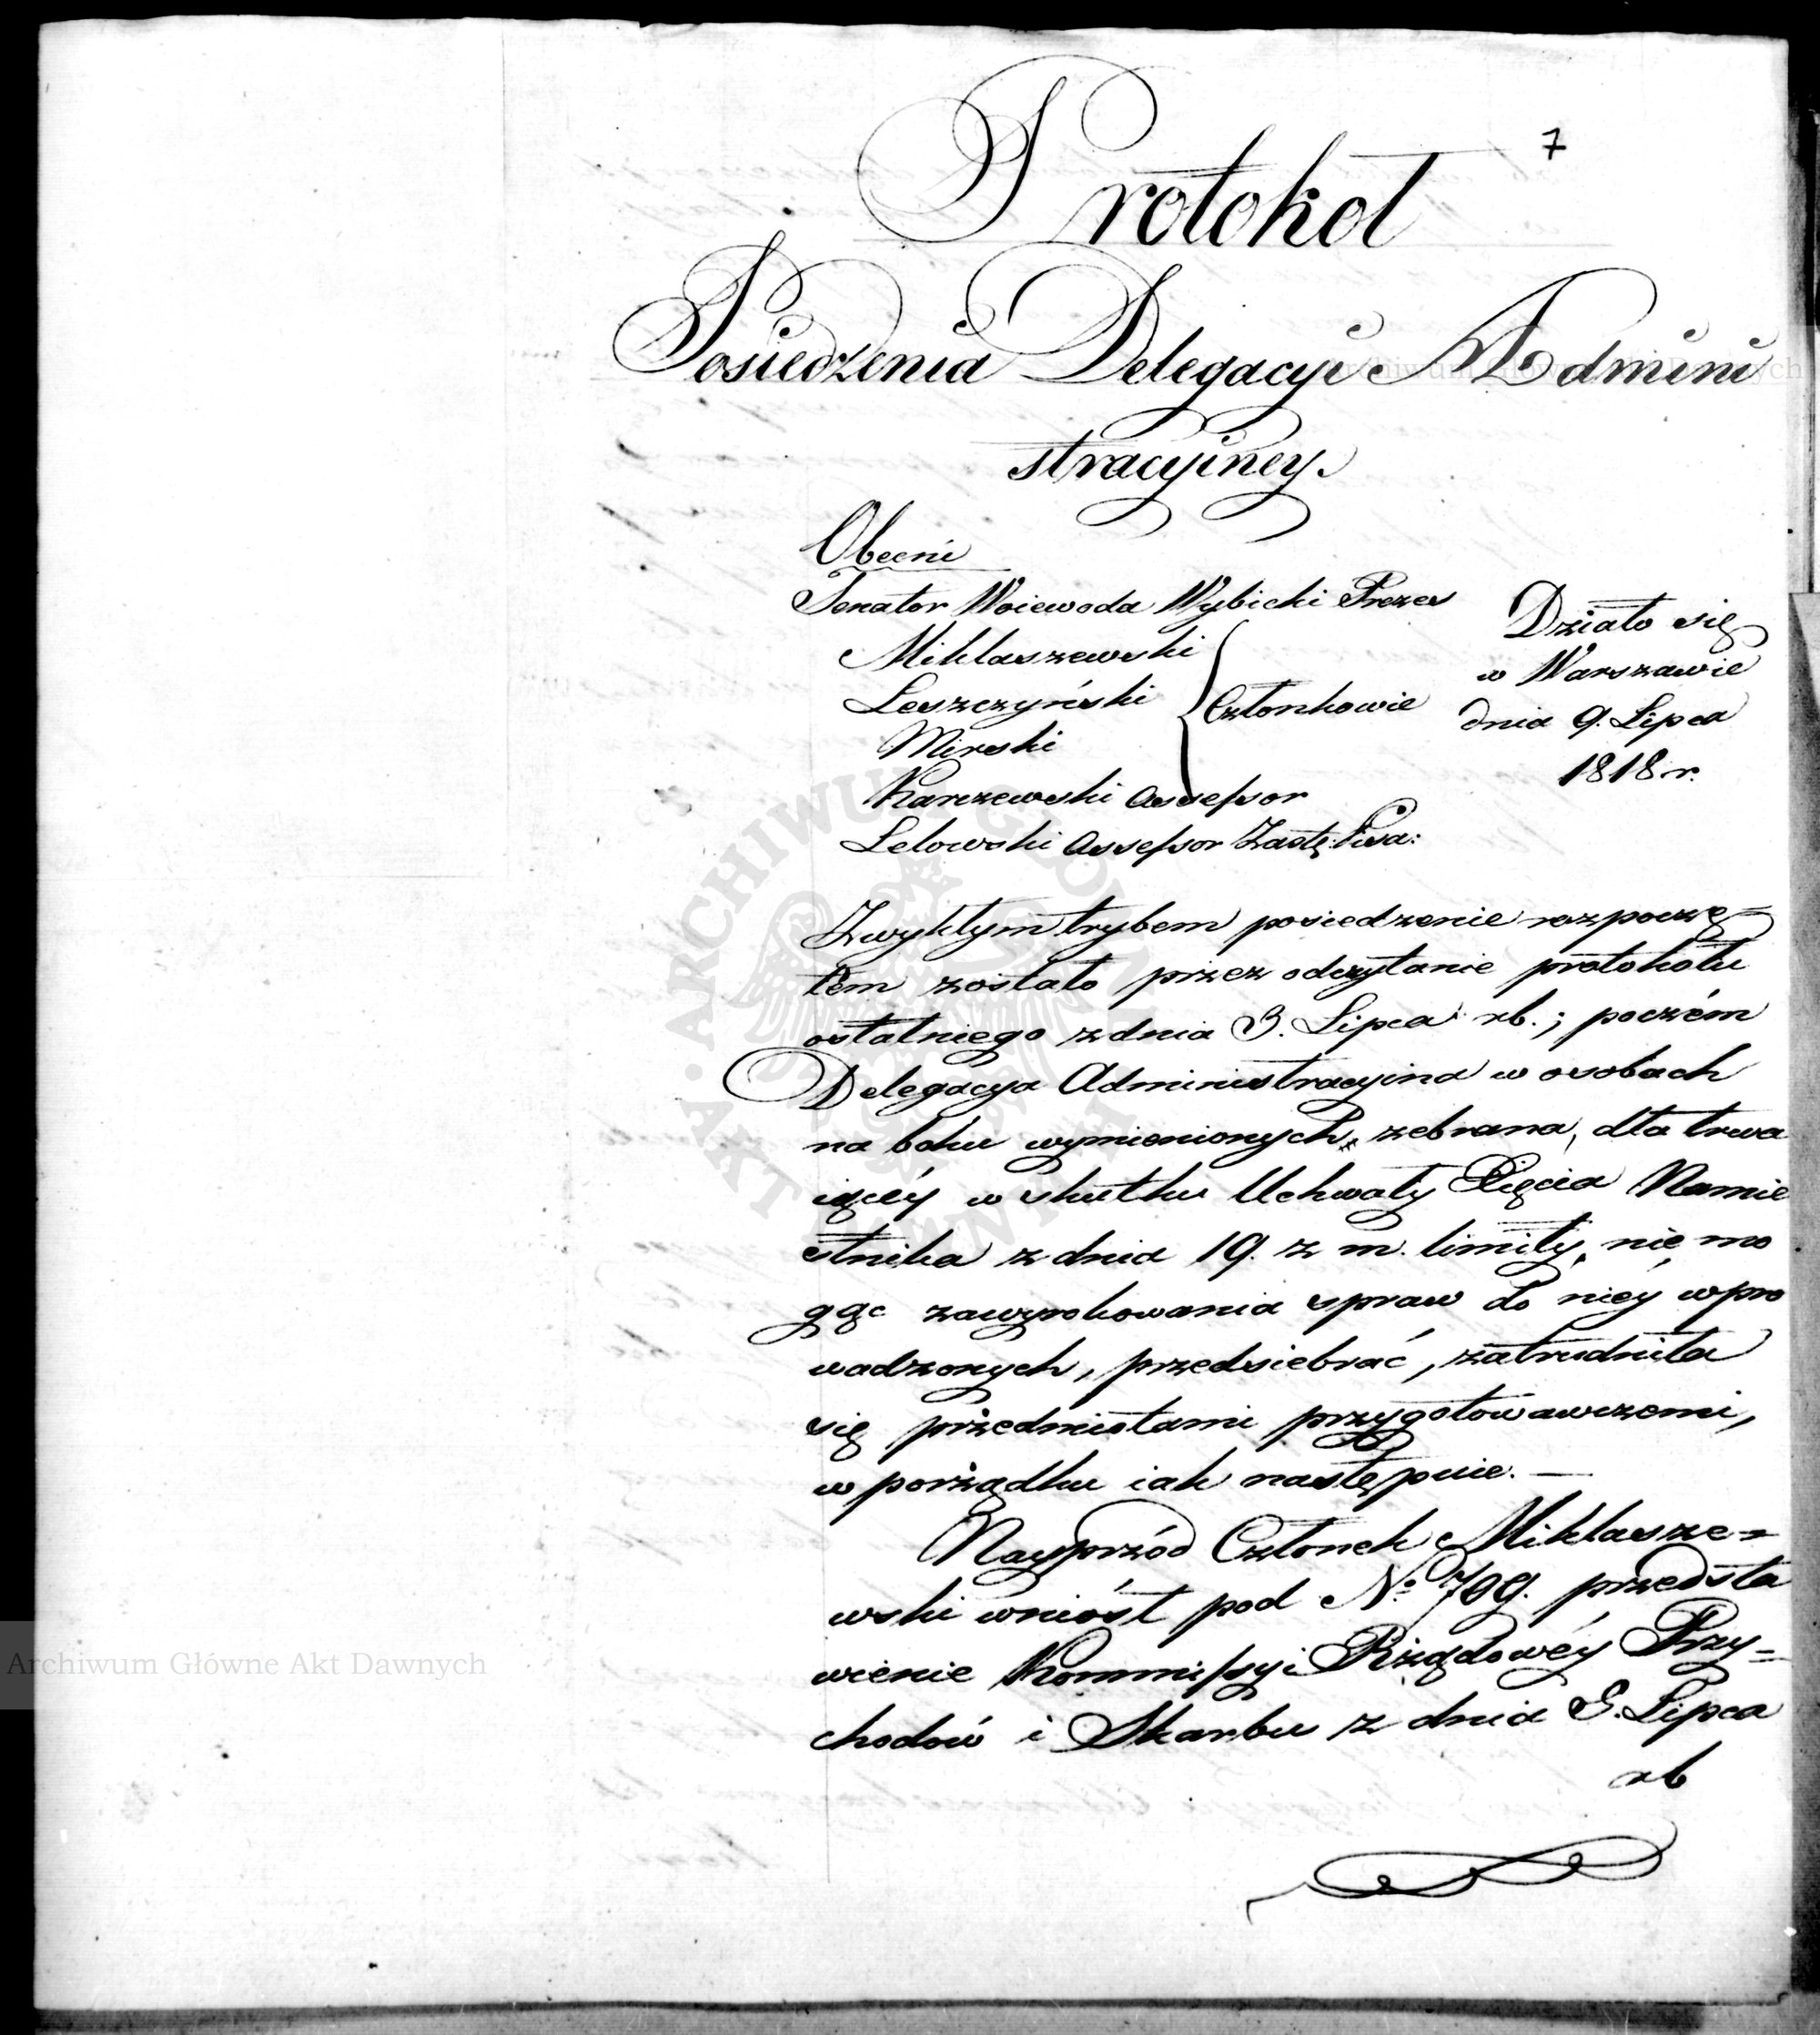 7
Protokoł
Posiedzenia Delegacyi Admini
stracyiney.
Obecni
Senator Woiewoda Wybicki Prezes
Miklaszewski
Leszczyński
Członkowie
Mirski
Karczewski Assessor
Lelowski Assessor Zastę: Pisa:
Działo się
w Warszawie
dnia 9. Lipca
1818 r.
Zwykłym trybem posiedzenie rozpoczę=
tem zostało przez odczytanie protokołu
ostatniego z dnia 3. Lipca rb.; poczém
Delegacya Administracyina w osobach
na boku wymienionych zebrana, dla trwa
iącéy w skutku Uchwały Xięcia Namie
stnika z dnia 19. z m. limity, nie mo
gąc zawyrokowania spraw do niéy wpro
wadzonych, przedsiebrać, zatrudniła
się przedmiotami przygotowawczemi,
w porządku iak następuie. —
Nayprzód Członek Miklasze=
wski wniósł pod No 709. przedsta
wienie Kommissyi Rządowéy Przy=
chodów i Skarbu z dnia Lipca
rb
Archiwum Główne Akt Dawnych
Archiwum Główne Akt Dawnych
ARCHIWUM GŁÓWNE AKT DAWNYCH